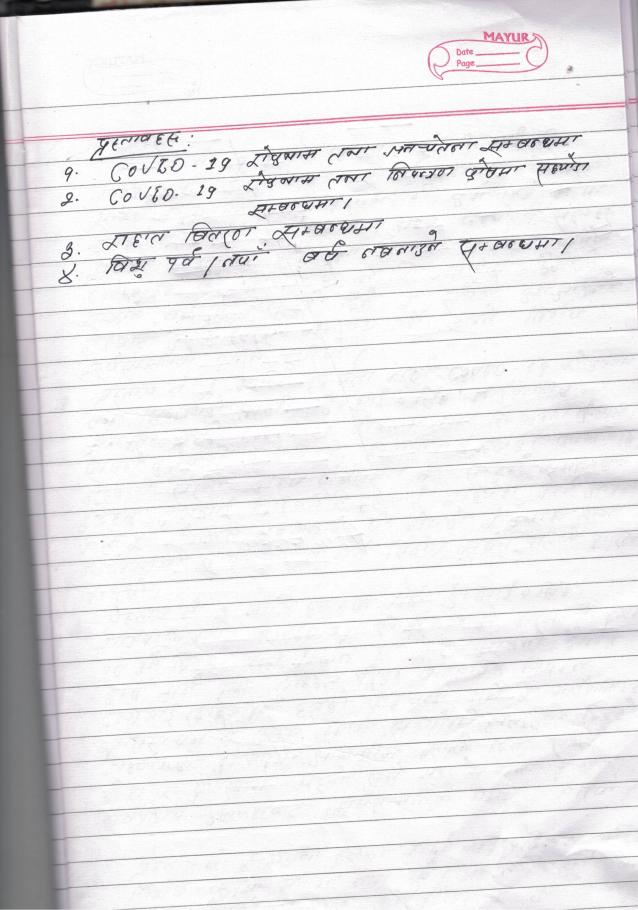 MAYUR
Date
Page
प्रस्तावहरु:
१. COVID-19 रोकथाम तथा जनचेतना सम्बन्धमा
२. COVID-19 रोकथाम तथा नियन्त्रण कोषमा सहयोग
सम्बन्धमा।
३. राहात बितरण सम्बन्धमा
४. बिशु पर्व / नयाँ बर्ष नबनाउने सम्बन्धमा।